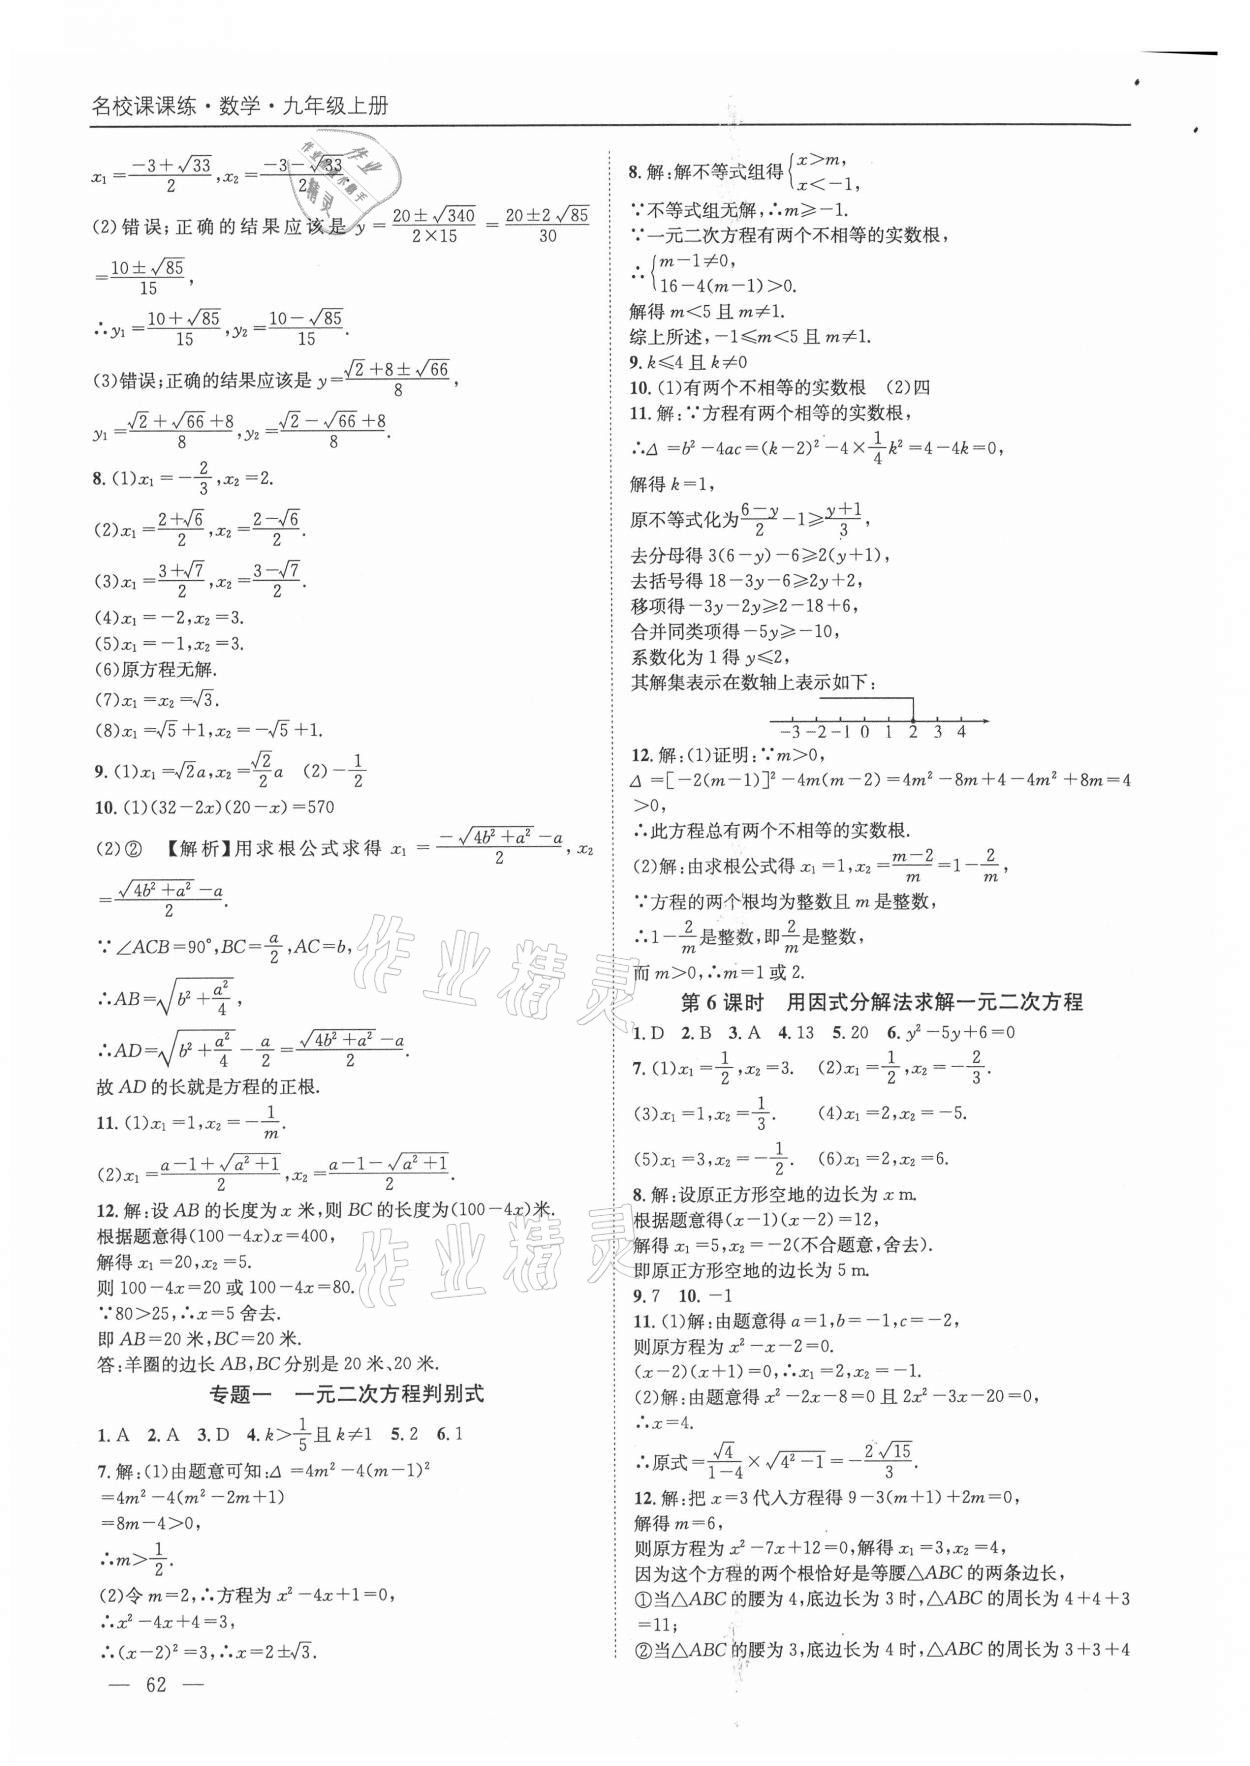 名校课课练·数学·九年级上册
x₁=(-3+√33)/2,x₂=(-3-√33)/2.
(2)错误;正确的结果应该是 y=(20±√340)/(2×15)=(20±2√85)/30
=(10±√85)/15,
∴y₁=(10+√85)/15,y₂=(10-√85)/15.
(3)错误;正确的结果应该是 y=(√2+8±√66)/8,
y₁=(√2+√66+8)/8,y₂=(√2-√66+8)/8.
8. (1)x₁=-2/3,x₂=2.
(2)x₁=(2+√6)/2,x₂=(2-√6)/2.
(3)x₁=(3+√7)/2,x₂=(3-√7)/2.
(4)x₁=-2,x₂=3.
(5)x₁=-1,x₂=3.
(6)原方程无解.
(7)x₁=x₂=√3.
(8)x₁=√5+1,x₂=-√5+1.
9. (1)x₁=√2a,x₂=(√2/2)a (2)-1/2
10. (1)(32-2x)(20-x)=570
(2)② 【解析】用求根公式求得 x₁=(-√(4b²+a²)-a)/2,x₂
=(√(4b²+a²)-a)/2.
∵∠ACB=90°,BC=a/2,AC=b,
∴AB=√(b²+a²/4),
∴AD=√(b²+a²/4)-a/2=(√(4b²+a²)-a)/2.
故 AD 的长就是方程的正根.
11. (1)x₁=1,x₂=-1/m.
(2)x₁=(a-1+√(a²+1))/2,x₂=(a-1-√(a²+1))/2.
12. 解:设 AB 的长度为 x 米,则 BC 的长度为(100-4x)米.
根据题意得(100-4x)x=400,
解得 x₁=20,x₂=5.
则 100-4x=20 或 100-4x=80.
∵80>25,∴x=5 舍去.
即 AB=20 米,BC=20 米.
答:羊圈的边长 AB,BC 分别是 20 米、20 米.
专题一 一元二次方程判别式
1. A 2. A 3. D 4. k>1/5且 k≠1 5. 2 6. 1
7. 解:(1)由题意可知:Δ=4m²-4(m-1)²
=4m²-4(m²-2m+1)
=8m-4>0,
∴m>1/2.
(2)令 m=2,∴方程为 x²-4x+1=0,
∴x²-4x+4=3,
∴(x-2)²=3,∴x=2±√3.
— 62 —
8. 解:解不等式组得{x>m, x<-1,
∵不等式组无解,∴m≥-1.
∵一元二次方程有两个不相等的实数根,
∴{m-1≠0, 16-4(m-1)>0.
解得 m<5 且 m≠1.
综上所述,-1≤m<5 且 m≠1.
9. k≤4 且 k≠0
10. (1)有两个不相等的实数根 (2)四
11. 解:∵方程有两个相等的实数根,
∴Δ=b²-4ac=(k-2)²-4×1/4k²=4-4k=0,
解得 k=1,
原不等式化为(6-y)/2-1≥(y+1)/3,
去分母得 3(6-y)-6≥2(y+1),
去括号得 18-3y-6≥2y+2,
移项得-3y-2y≥2-18+6,
合并同类项得-5y≥-10,
系数化为 1 得 y≤2,
其解集表示在数轴上表示如下:
-3 -2 -1 0 1 2 3 4
12. 解:(1)证明:∵m>0,
Δ=[-2(m-1)]²-4m(m-2)=4m²-8m+4-4m²+8m=4
>0,
∴此方程总有两个不相等的实数根.
(2)解:由求根公式得 x₁=1,x₂=(m-2)/m=1-2/m,
∵方程的两个根均为整数且 m 是整数,
∴1-2/m是整数,即2/m是整数,
而 m>0,∴m=1 或 2.
第 6 课时 用因式分解法求解一元二次方程
1. D 2. B 3. A 4. 13 5. 20 6. y²-5y+6=0
7. (1)x₁=1/2,x₂=3. (2)x₁=1/2,x₂=-2/3.
(3)x₁=1,x₂=1/3. (4)x₁=2,x₂=-5.
(5)x₁=3,x₂=-1/2. (6)x₁=2,x₂=6.
8. 解:设原正方形空地的边长为 x m.
根据题意得(x-1)(x-2)=12,
解得 x₁=5,x₂=-2(不合题意,舍去).
即原正方形空地的边长为 5 m.
9. 7 10. -1
11. (1)解:由题意得 a=1,b=-1,c=-2,
则原方程为 x²-x-2=0.
(x-2)(x+1)=0,∴x₁=2,x₂=-1.
(2)解:由题意得 x²-2x-8=0 且 2x²-3x-20=0,
∴x=4.
∴原式=√4/(1-4)×√(4²-1)=-2√15/3.
12. 解:把 x=3 代入方程得 9-3(m+1)+2m=0,
解得 m=6,
则原方程为 x²-7x+12=0,解得 x₁=3,x₂=4,
因为这个方程的两个根恰好是等腰△ABC 的两条边长,
①当△ABC 的腰为 4,底边长为 3 时,△ABC 的周长为 4+4+3
=11;
②当△ABC 的腰为 3,底边长为 4 时,△ABC 的周长为 3+3+4
作业精灵
作业精灵